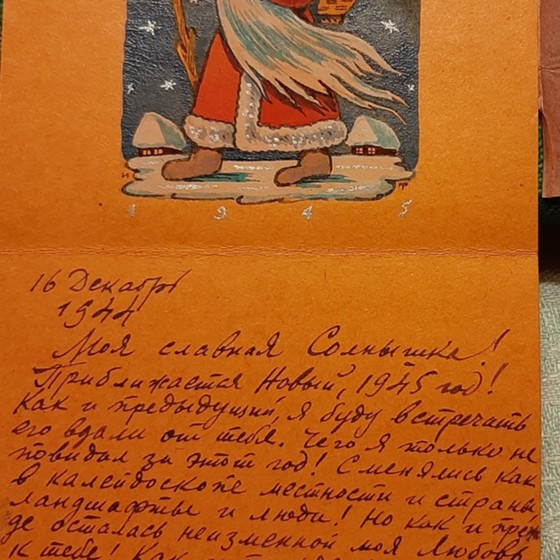 1 9 4 5
16 Декабря
1944
Моя славная Солнышка!
Приближается Новый, 1945 год!
Как и предыдущий, я буду встречать
его вдали от тебя. Чего я только не
повидал за этот год! Сменялись как
в калейдоскопе местности и страны
ландшафты и люди! Но как и преж
де осталась неизменной моя Любовь
к тебе! Как